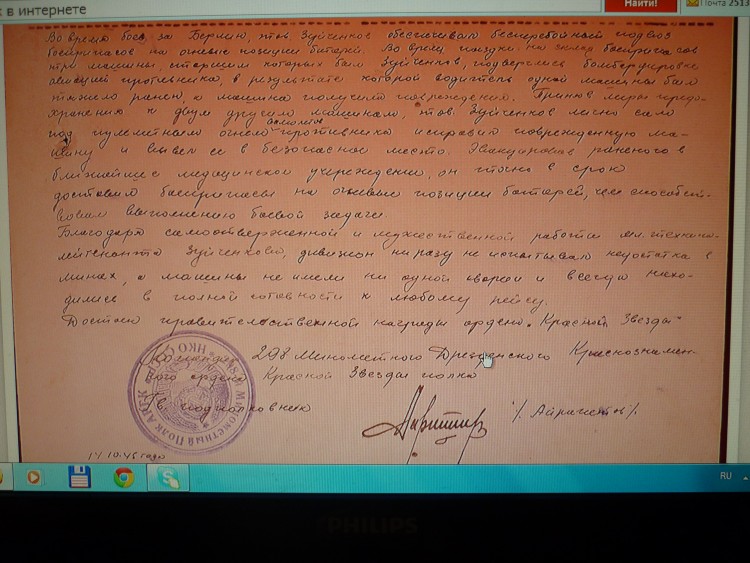 к в интернете
Найти!
Почта 2513
Во время боев за Берлин, тов. Зуйченков обеспечивал бесперебойный подвоз
боеприпасов на огневые позиции батарей. Во время поездки на склад боеприпасов
три машины, старшим которых был Зуйченков, подверглись бомбардировке
авиации противника, в результате которой водитель одной машины был
тяжело ранен, а машина получила повреждения. Приняв меры предо-
хранения к двум другим машинам, тов. Зуйченков лично сам
под пулеметным огнем самолетов противника исправил поврежденную ма-
шину и вывел ее в безопасное место. Эвакуировав раненого в
ближайшее медицинское учреждение, он точно в срок
доставил боеприпасы на огневые позиции батарей, чем способст-
вовал выполнению боевой задачи.
Благодаря самоотверженной и мужественной работы мл. техника-
лейтенанта Зуйченкова, дивизион ни разу не испытывал недостатка в
минах, а машины не имели ни одной аварии и всегда нахо-
дились в полной готовности к любому рейсу.
Достоин правительственной награды ордена "Красной Звезды"
Командир 298 Минометного Дрезденского Краснознамен-
ного ордена Красной Звезды полка
подполковник /Айрапетов/
Минометный Полк НКО
14.10.45 года
RU
PHILIPS